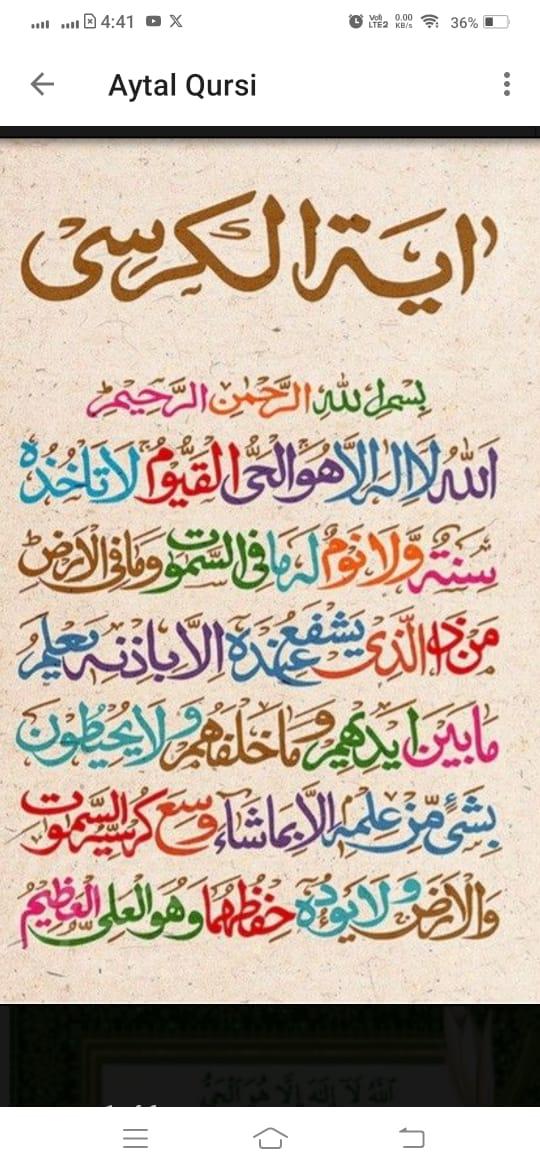 4:41
Voß LTE2 0.00 KB/s 36%
Aytal Qursi
اية الكرسی
بسم الله الرحمن الرحیم
الله لا اله الا هو الحی القیوم لا تاخذه
سنة ولا نوم له ما فی السموت وما فی الارض
من ذا الذی یشفع عنده الا باذنه یعلم
ما بین ایدیهم وما خلفهم ولا یحیطون
بشیء من علمه الا بما شاء وسع کرسیه السموت
والارض ولا یوده حفظهما وهو العلی العظیم
الله لا اله الا هو الحی